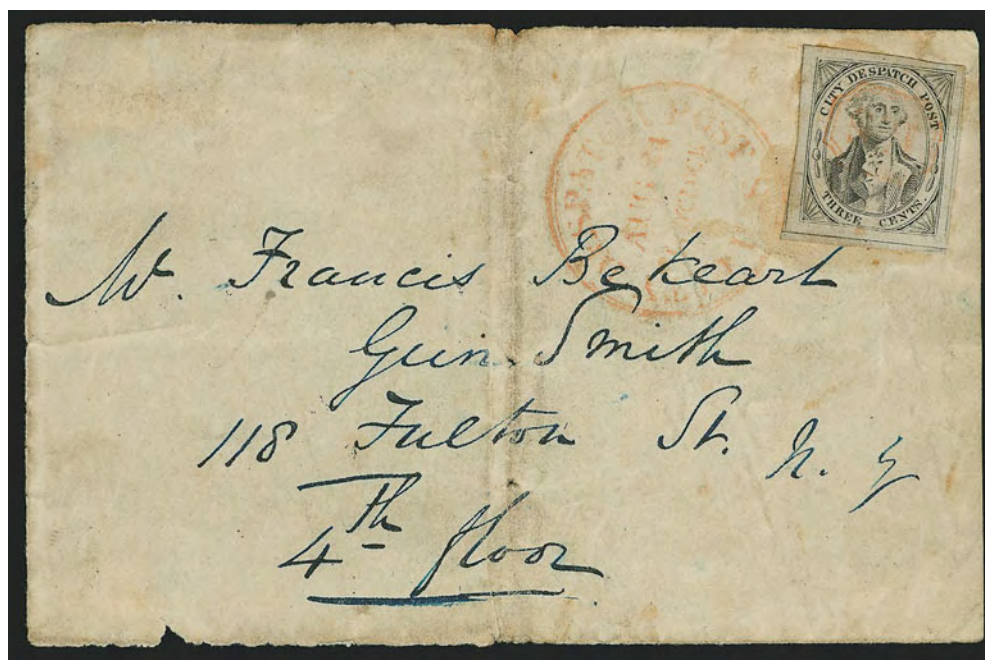 CITY DESPATCH POST
THREE CENTS.
DESPATCH POST
AUG 24
O'CLOCK
Mr. Francis Bekeart
Gun Smith
118 Fulton St. N. Y
4th floor